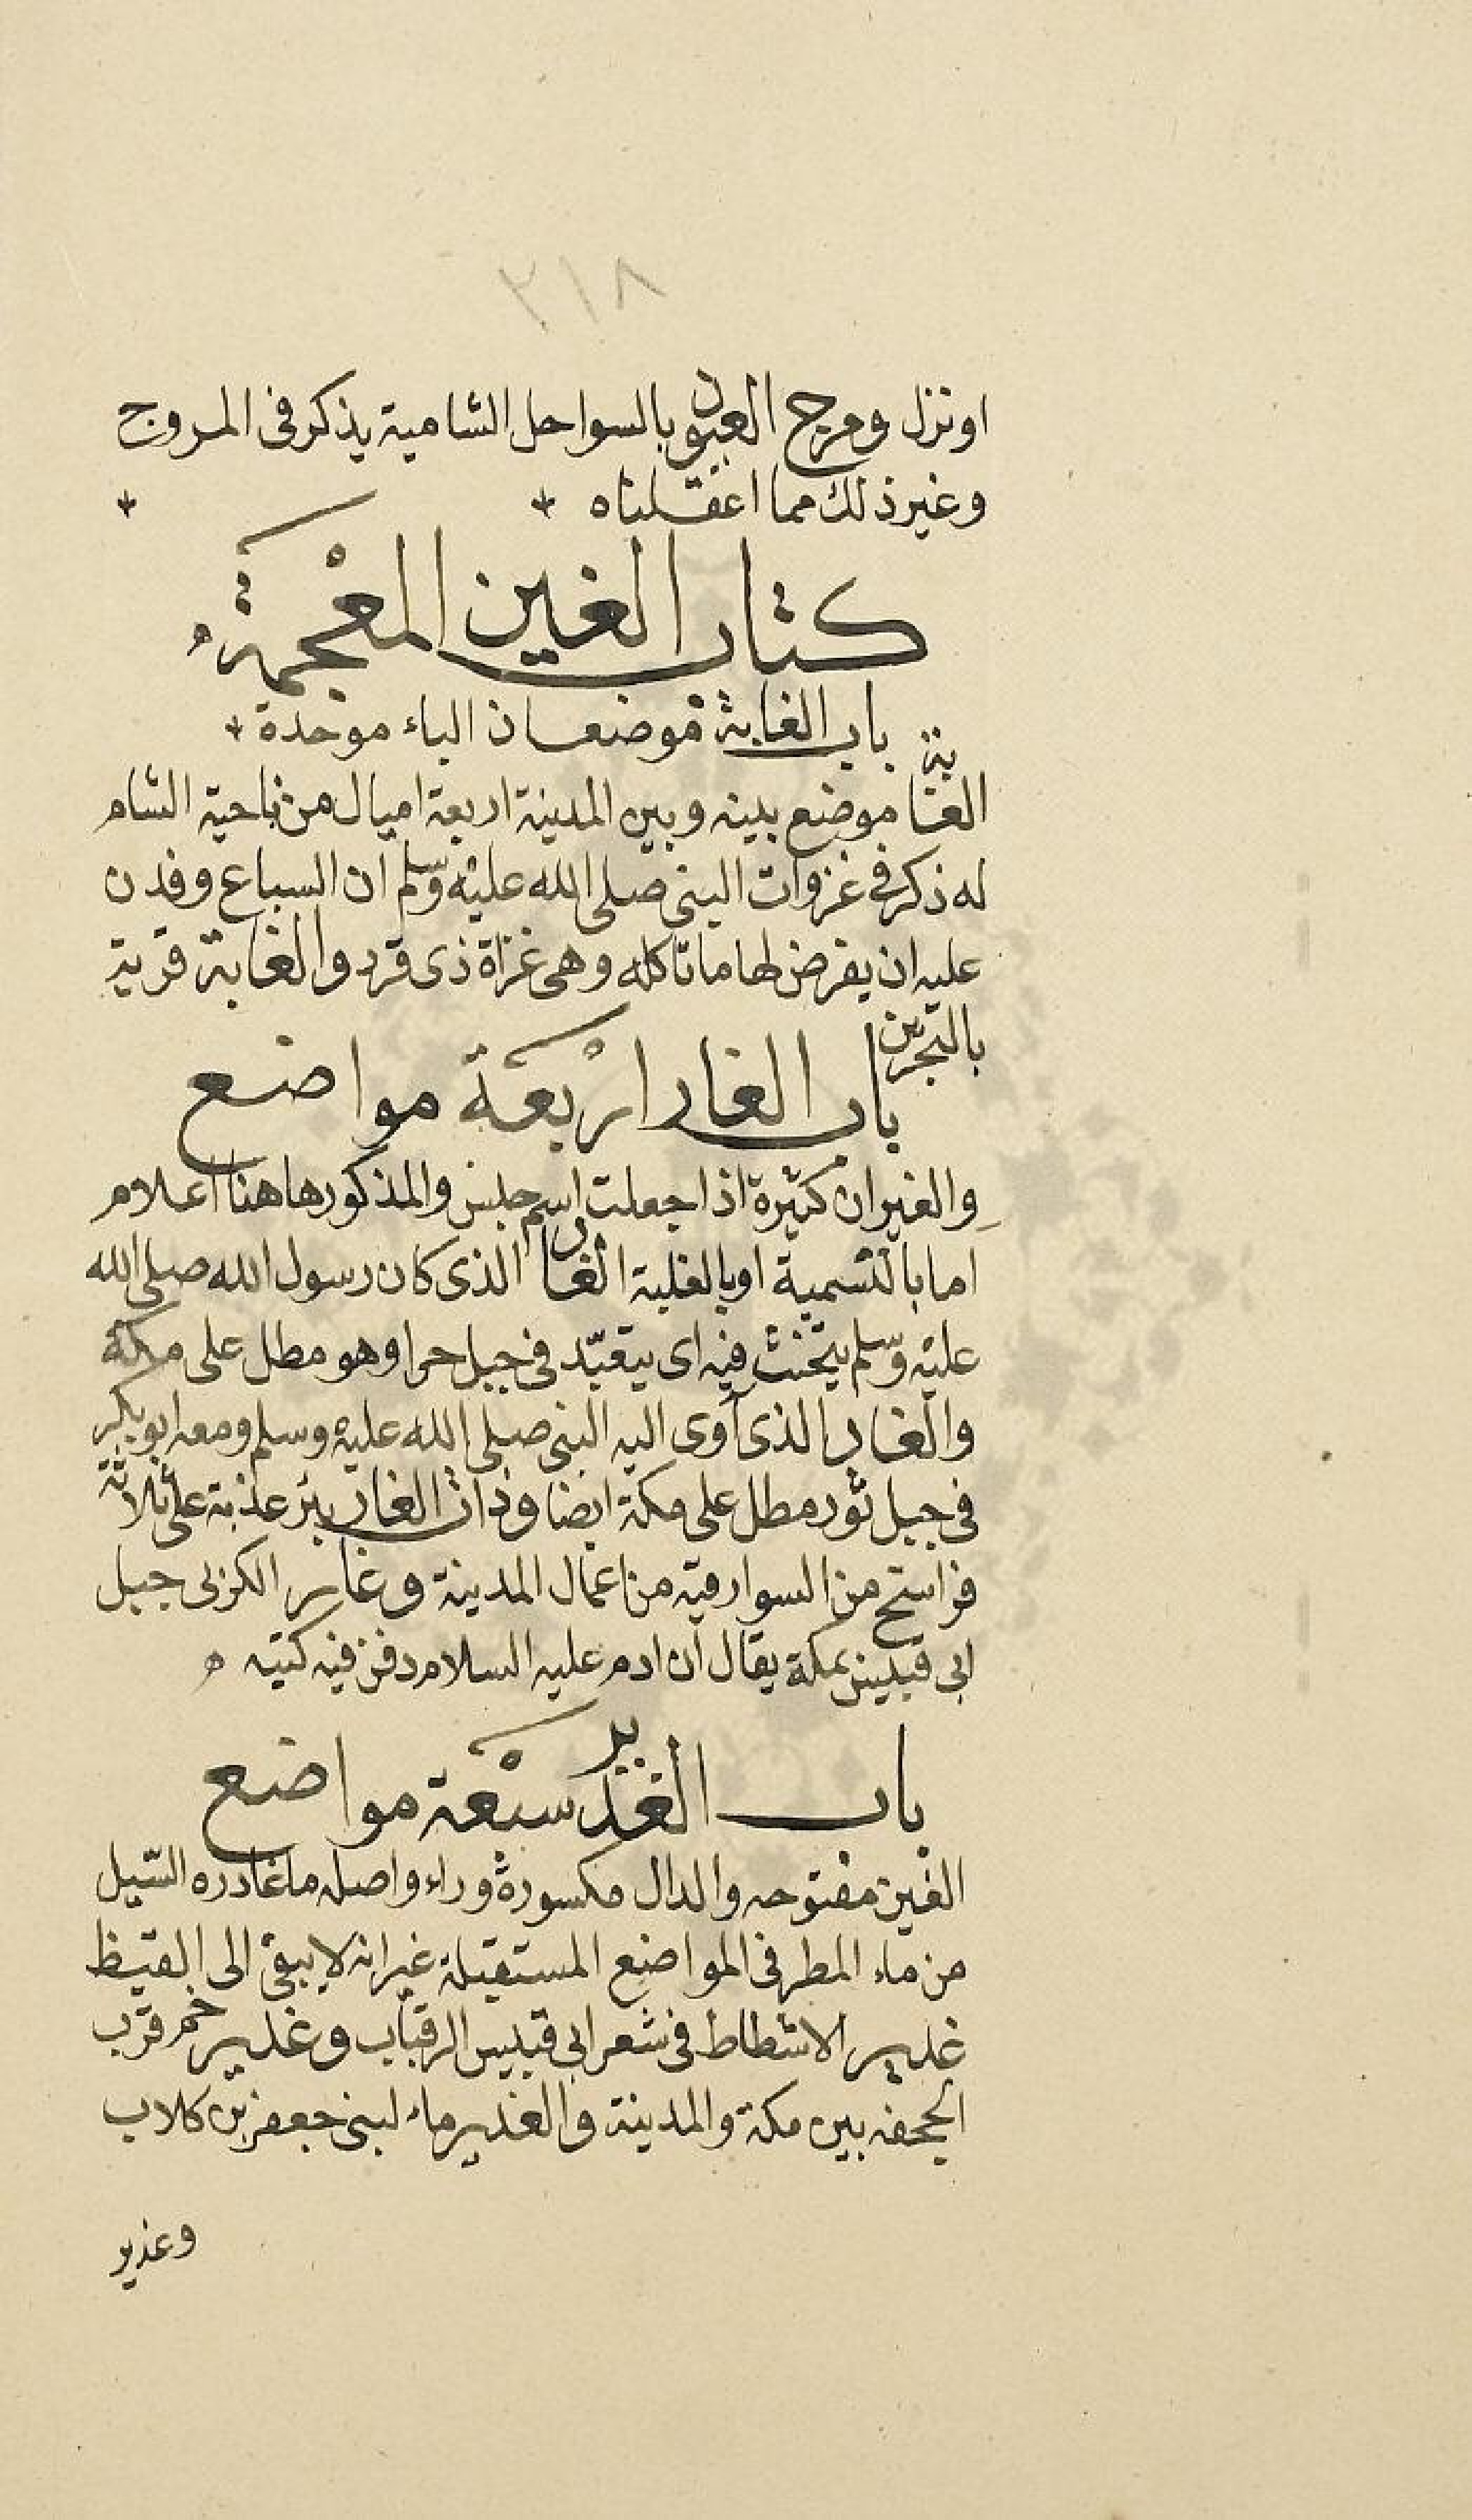 ٣١٨
او نزل ومرج العيون بالسواحل الشامية يذكر فى المروج
وغير ذلك مما اغفلناه
كتاب الغين المعجمة
باب الغابة موضعان الباء موحدة
الغابة موضع بينه وبين المدينة اربعة اميال من ناحية الشام
له ذكر فى غزوات النبى صلى الله عليه وسلم ان السباع وفدن
عليه ان يفرض لها ما تاكله وهى غزاة ذى قرد والغابة قرية
بالبحرين
باب الغار اربعة مواضع
والغيران كثيرة اذا جعلت اسم جنس والمذكور هاهنا اعلام
اما بالتسمية او بالغلبة الغار الذى كان رسول الله صلى الله
عليه وسلم يتحنث فيه اى يتعبّد فى جبل حرا وهو مطل على مكة
والغار الذى آوى اليه النبى صلى الله عليه وسلم ومعه ابو بكر
فى جبل ثور مطل على مكة ايضا وذات الغار بئر عذبة على ثلاثة
فراسخ من السوارقيه من اعمال المدينة وغار الكنز فى جبل
ابى قبيس بمكة يقال ان ادم عليه السلام دفن فيه كتبه
باب الغدير سبعة مواضع
الغين مفتوحه والدال مكسورة وراء واصله ما غادره السّيل
من ماء المطر فى المواضع المستقبلة غير انه لا يبقى الى القيظ
غدير الاشطاط فى شعر ابى قبيس الرقيات وغدير خم قرب
الجحفه بين مكة والمدينة والغدير ماء لبنى جعفر بن كلاب
وغدير